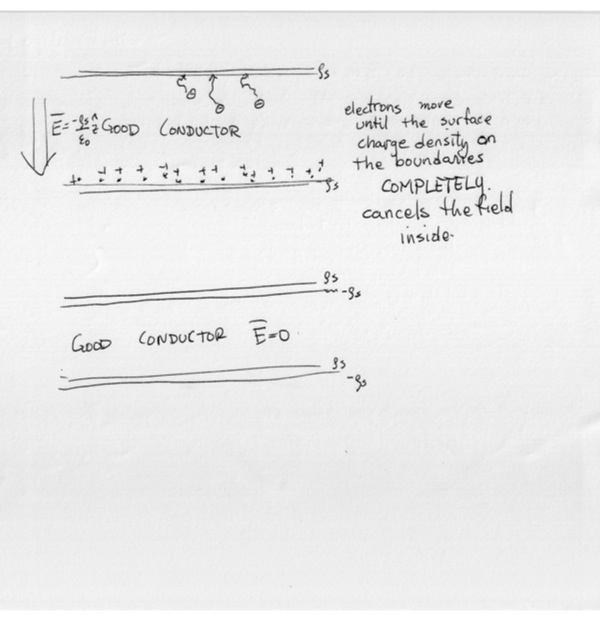 ρs
E̅ = -ρs/ε₀ ẑ GOOD CONDUCTOR
ρs
electrons move
until the surface
charge density on
the boundaries
COMPLETELY.
cancels the field
inside.
ρs
-ρs
GOOD CONDUCTOR E̅=0
ρs
-ρs